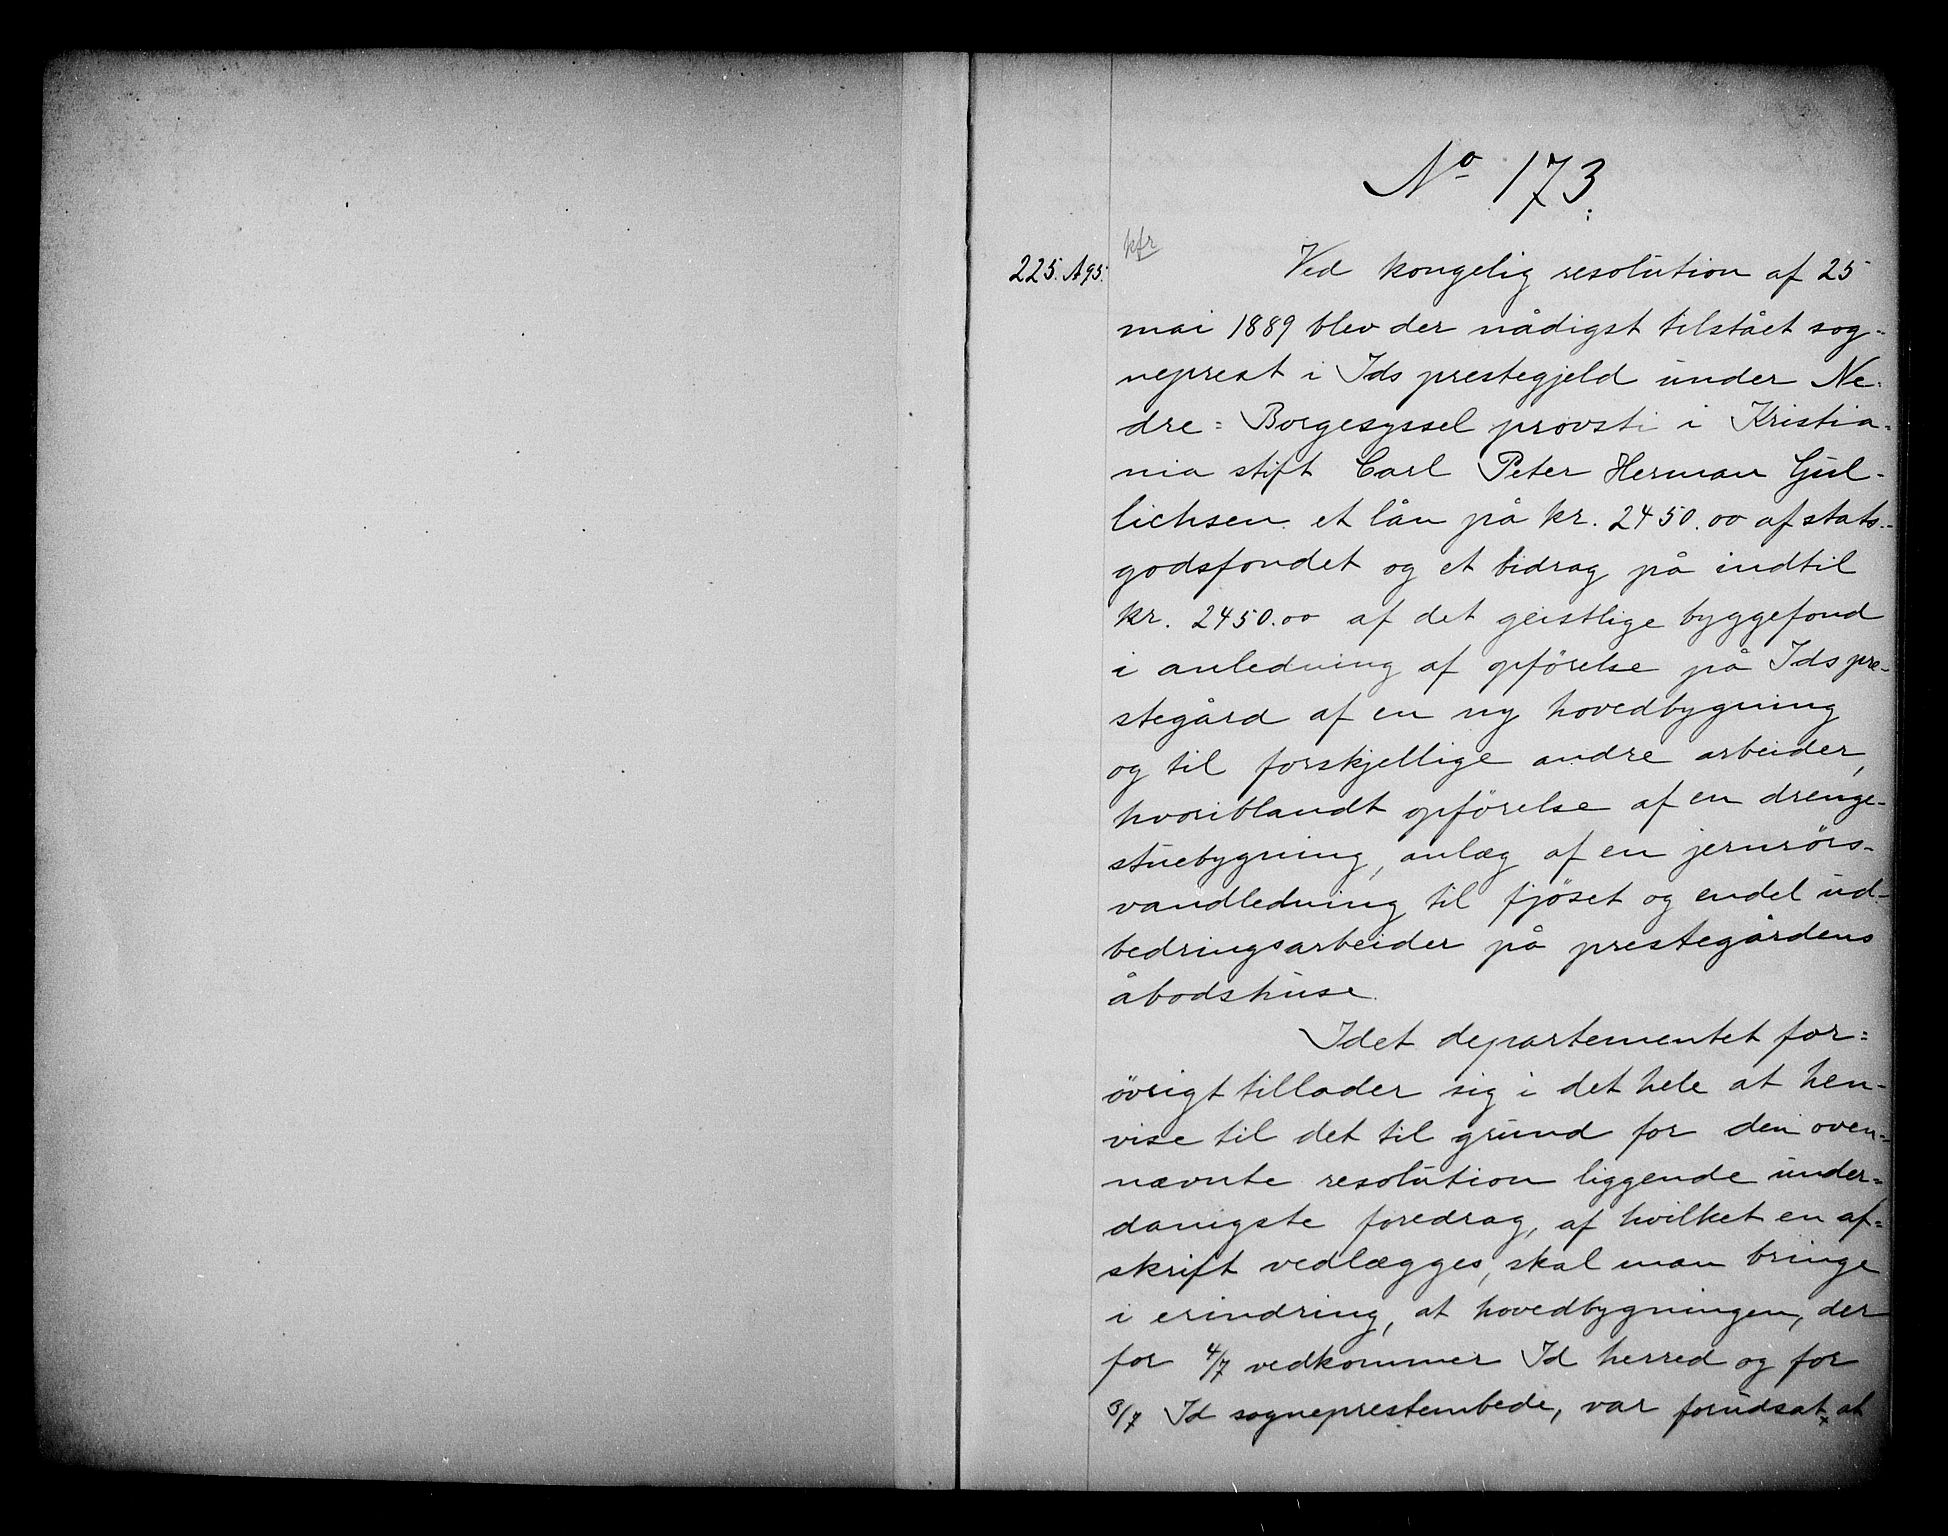 No 173.
kfr
225. A95.
Ved kongelig resolution af 25
mai 1889 blev der nådigst tilstået sog-
neprest i Ids prestegjeld under Ne-
dre-Borgesyssel provsti i Kristia-
nia stift Carl Peter Herman Gul-
lichsen et lån på kr. 2450.00 af stats-
godsfondet og et bidrag på indtil
kr. 2450.00 af det geistlige byggefond
i anledning af opförelse på Ids pre-
stegård af en ny hovedbygning
og til forskjellige andre arbeider,
hvoriblandt opförelse af en drenge-
stuebygning, anlæg af en jernrörs-
vandledning til fjöset og endel ud-
bedringsarbeider på prestegårdens
åbodshuse.
Idet departementet for-
övrigt tillader sig i det hele at hen-
vise til det til grund for den oven-
nævnte resolution liggende under-
danigste foredrag, af hvilket en af-
skrift vedlægges, skal man bringe
i erindring, at hovedbygningen, der
for 4/7 vedkommer Id herred og for
3/7 Id sogneprestembede, var forudsat at